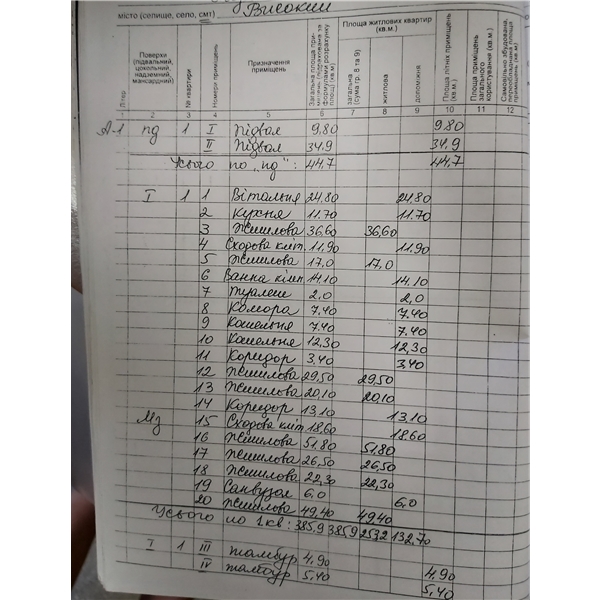 місто (селище, село, смт) Високий
Літер | Поверхи (підвальний, цокольний, надземний, мансардний) | № квартири | Номери приміщень | Призначення приміщень | Загальна площа приміщень (підрахована за формулами розрахунку площ) (кв.м) | Площа житлових квартир (кв.м.) | загальна (сума гр. 8 та 9) | житлова | допоміжна | Площа літніх приміщень (кв.м.) | Площа приміщень загального користування (кв.м.) | Самовільно збудована, площа приміщень (кв.м.)
1 2 3 4 5 6 7 8 9 10 11 12
А-1 пд 1 I Підвал 9.80 9.80
II Підвал 34,9 34,9
Усього по „пд": 44,7 44,7
I 1 1 Вітальня 24.80 24,80
2 Кухня 11.70 11.70
3 Житлова 36,60 36,60
4 Сходова кліт. 11,90 11,90
5 Житлова 17,0 17,0
6 Ванна кімн 14,10 14,10
7 Туалет 2,0 2,0
8 Комора 7.40 7.40
9 Котельня 7.40 7.40
10 Котельня 12,30 12,30
11 Коридор 3,40 3,40
12 Житлова 29,50 29,50
13 Житлова 20,10 20,10
14 Коридор 13,10 13,10
Мз 15 Сходова кліт 18,60 18.60
16 Житлова 51.80 51.80
17 Житлова 26,50 26,50
18 Житлова 22,30 22,30
19 Санвузол 6,0 6,0
20 Житлова 49,40 49,40
Усього по 1 кв: 385,9 385,9 253,2 132,70
I 1 III тамбур 4,90 4,90
IV тамбур 5,40 5,40